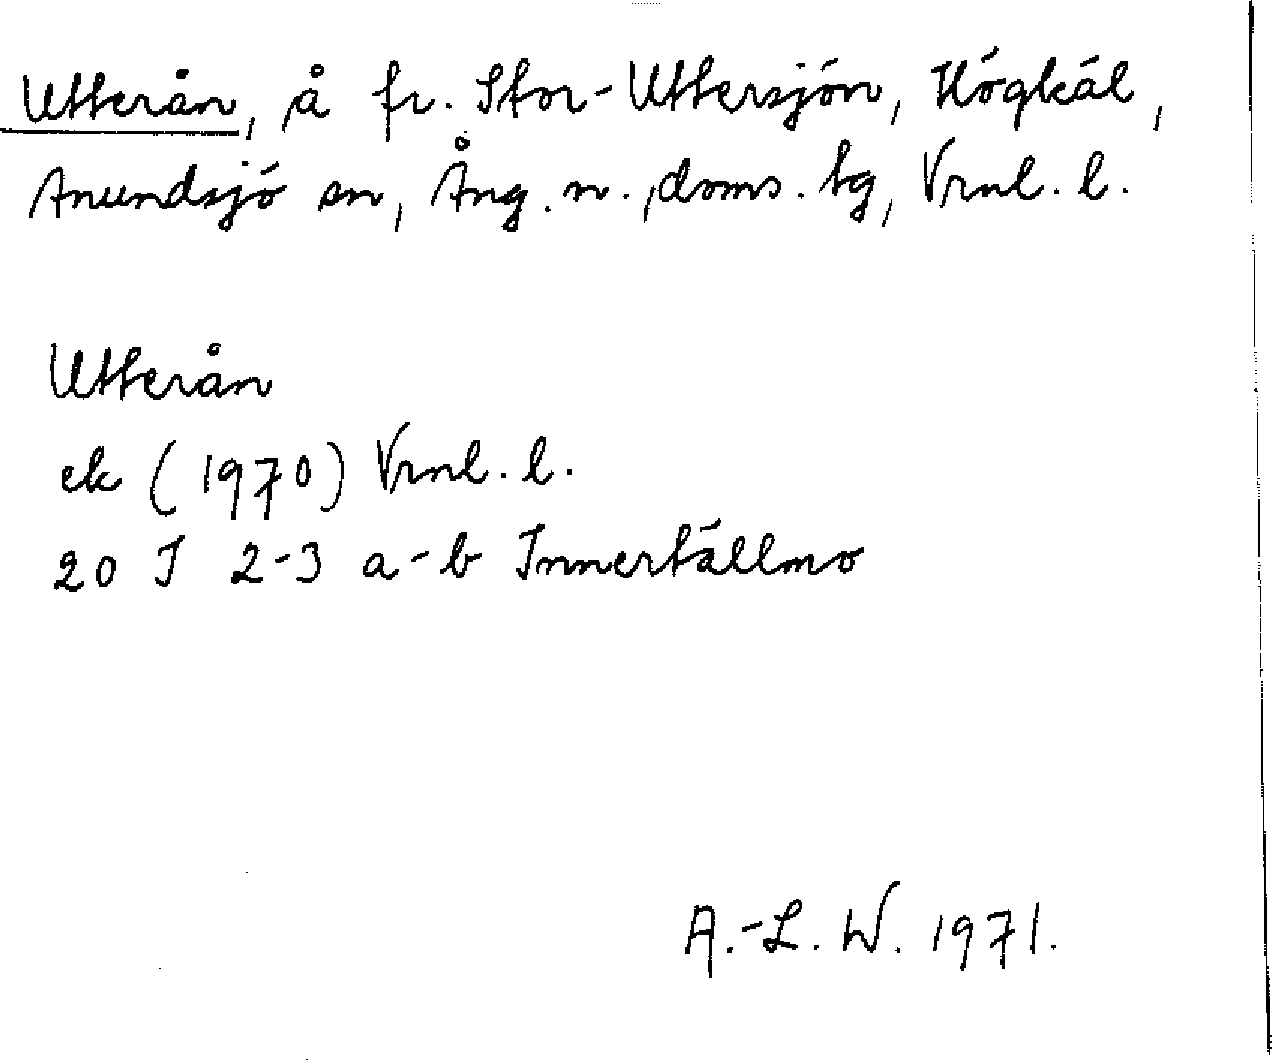 Utterån, å fr. Stor-Uttersjön, Högkål,
Anundsjö sn, Ång. n. doms. tg, Vrnl. l.
Utterån
ek (1970) Vrnl. l.
20 J 2-3 a-b Innertällmo
A.-L. W. 1971.